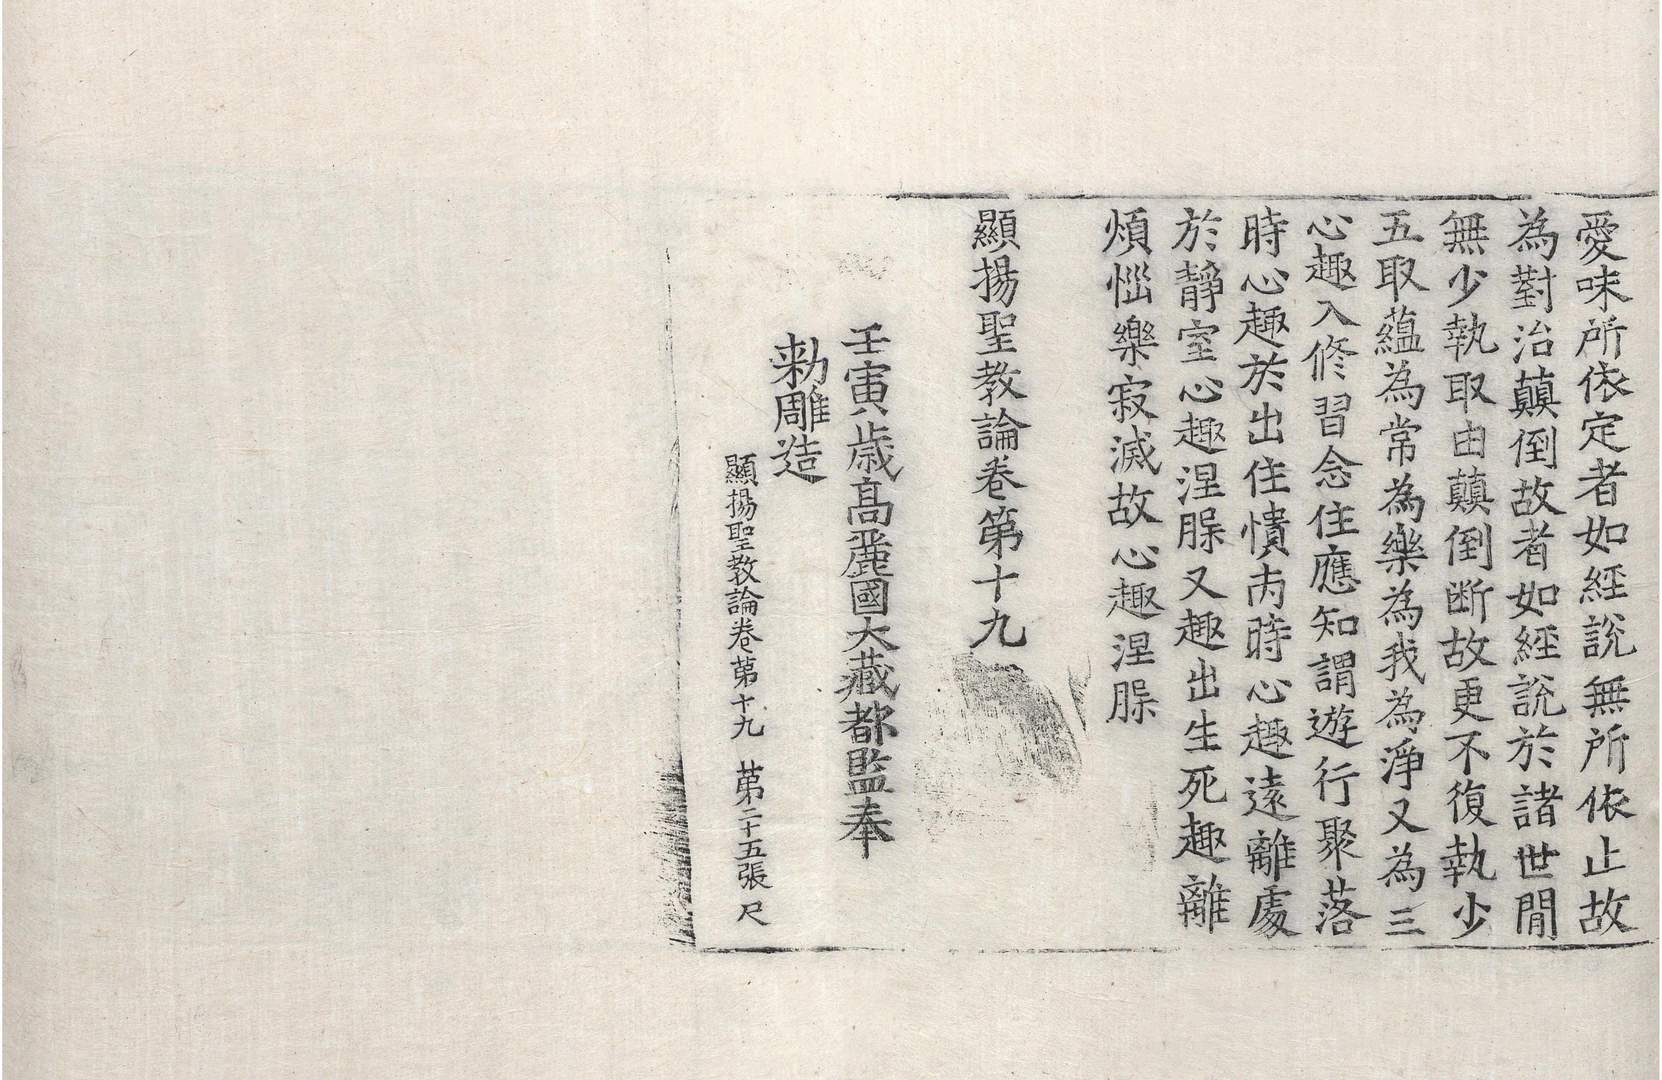 愛味所依定者如經說無所依止故
為對治顚倒故者如經說於諸世間
無少執取由顚倒斷故更不復執少
五取蘊為常為樂為我為淨又為三
心趣入修習念住應知謂遊行聚落
時心趣於出住憒丙時心趣遠離處
於靜室心趣涅脲又趣出生死趣離
煩惱樂寂滅故心趣涅脲
顯揚聖教論卷第十九
壬寅歳高麗國大藏都監奉
勅雕造
顯揚聖教論卷第十九 第二十五張 尺